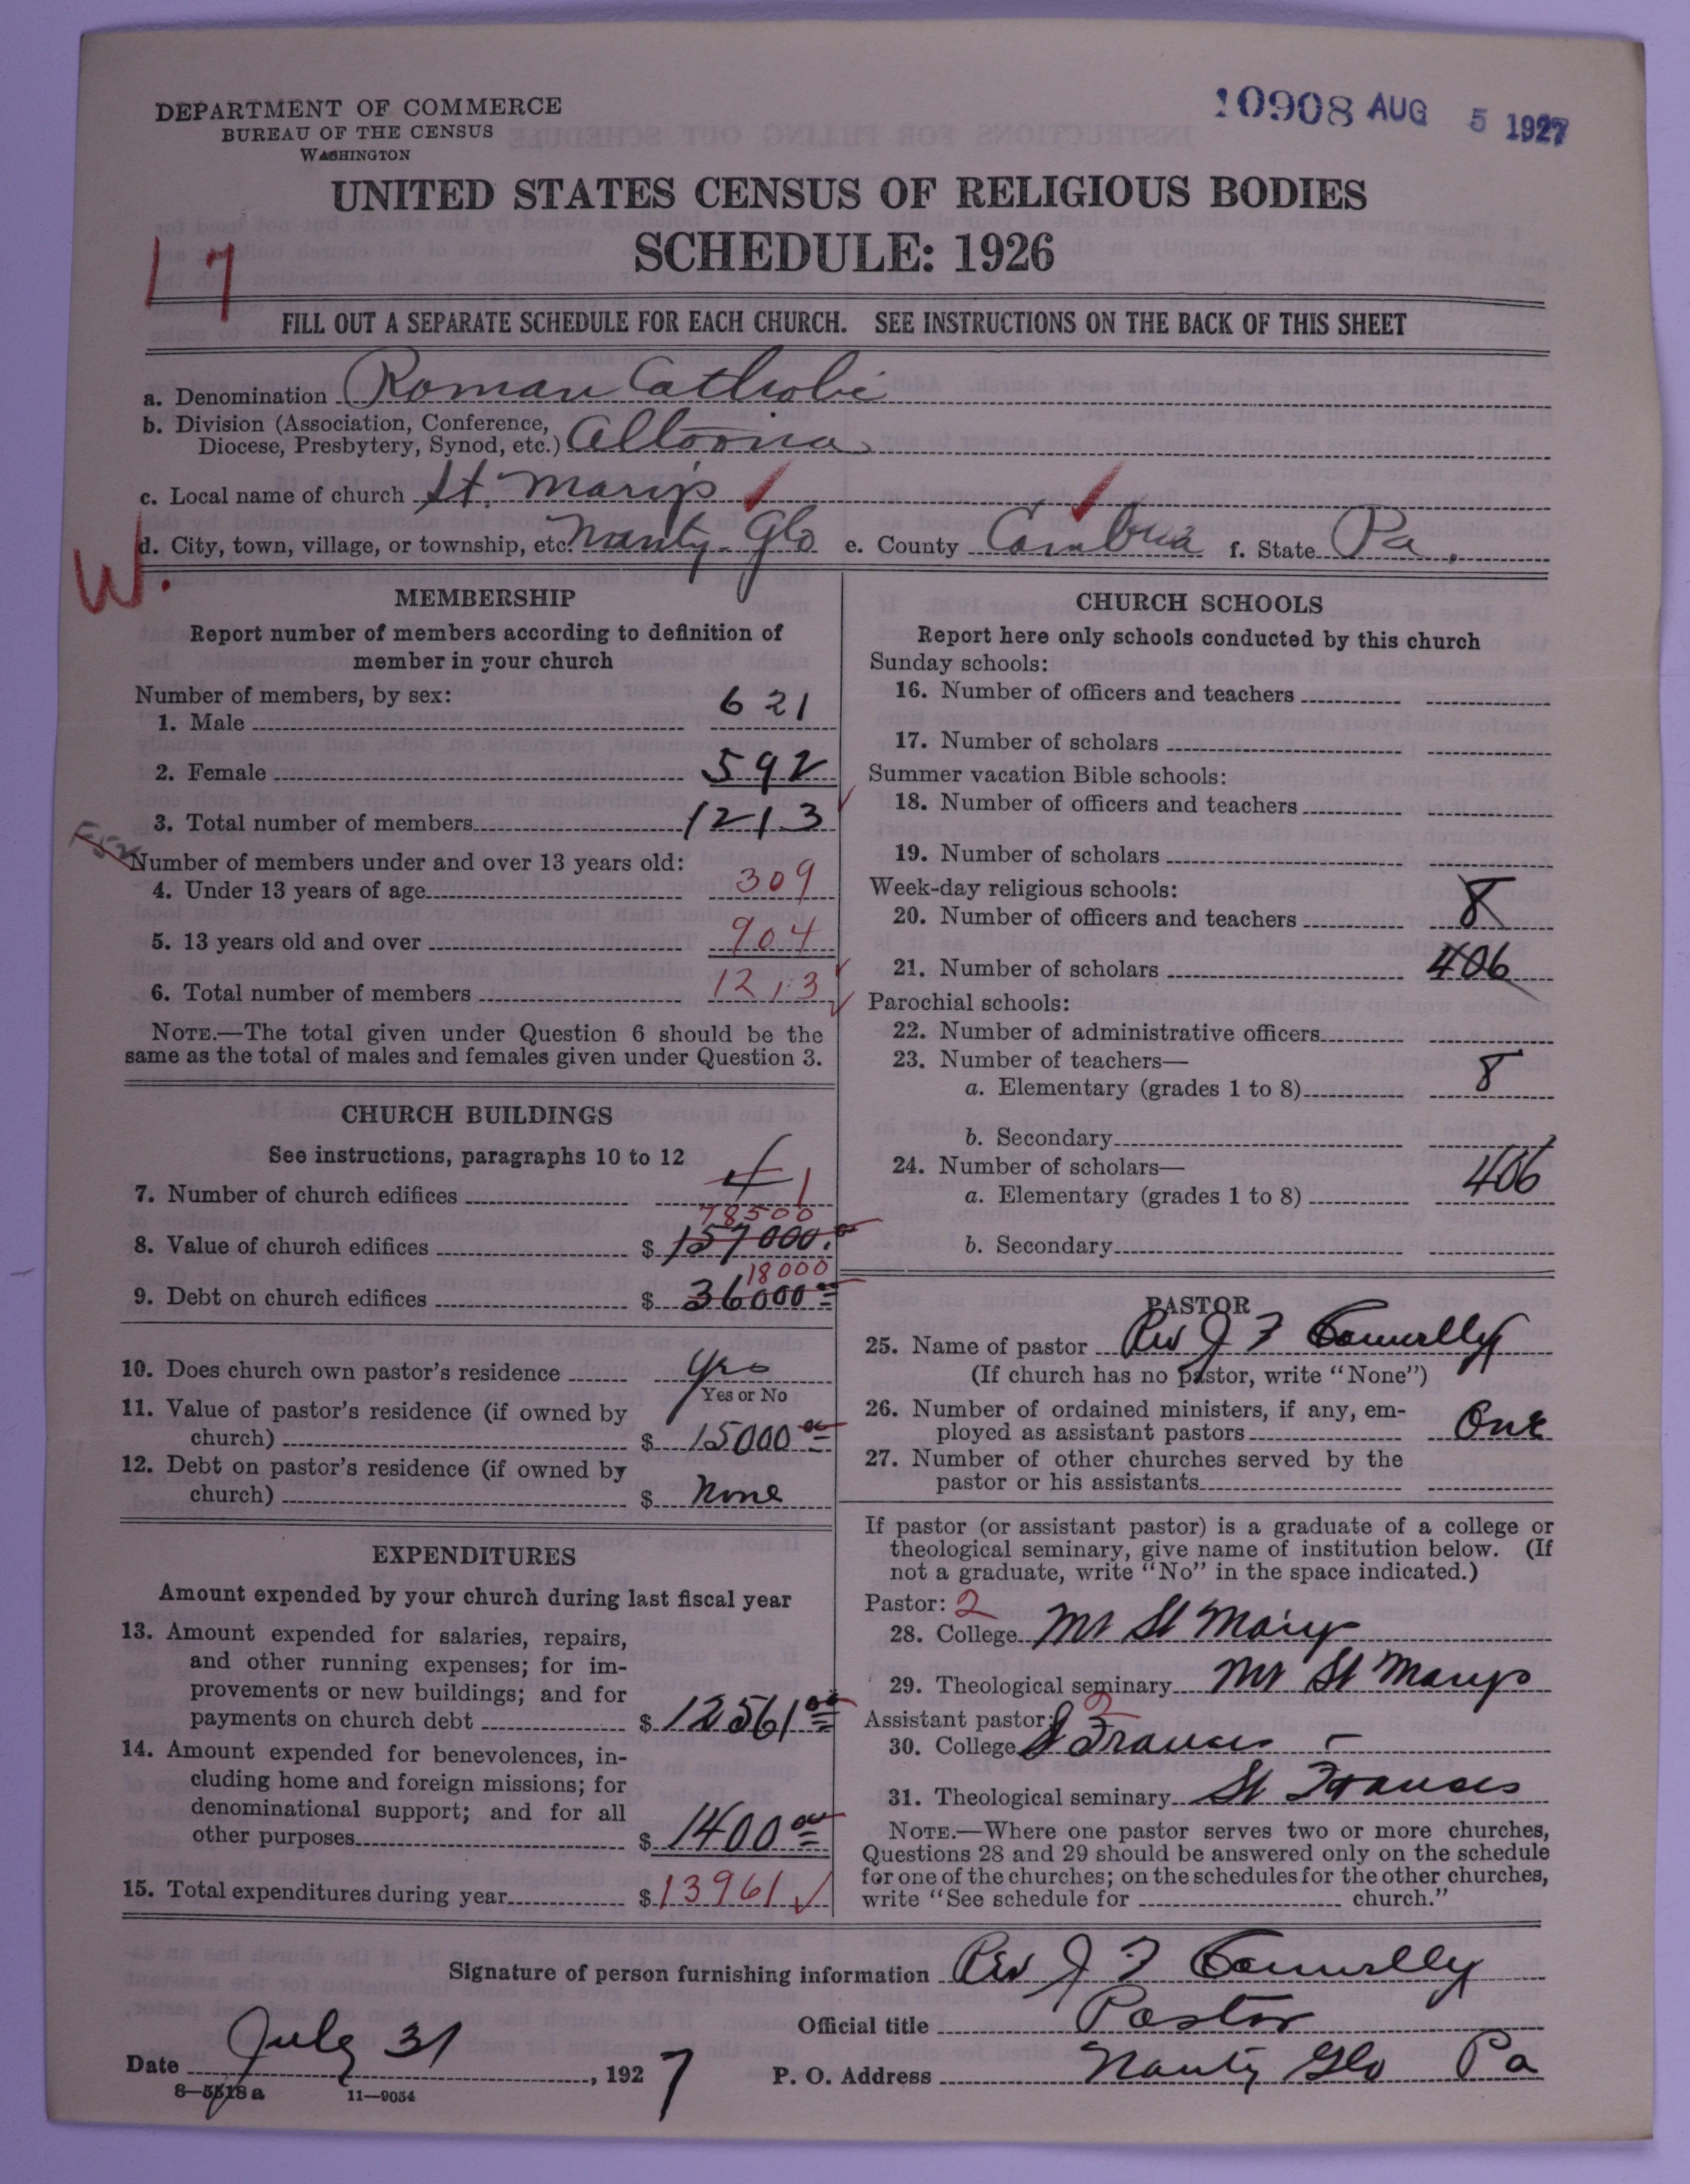 DEPARTMENT OF COMMERCE
BUREAU OF THE CENSUS
WASHINGTON
10908 AUG 5 1927
UNITED STATES CENSUS OF RELIGIOUS BODIES
SCHEDULE: 1926
17
FILL OUT A SEPARATE SCHEDULE FOR EACH CHURCH. SEE INSTRUCTIONS ON THE BACK OF THIS SHEET
a. Denomination Roman Catholic
b. Division (Association, Conference,
Diocese, Presbytery, Synod, etc.) Altoona
c. Local name of church St. Mary's
W.
d. City, town, village, or township, etc. Nanty-Glo e. County Cambria f. State Pa.
MEMBERSHIP
Report number of members according to definition of
member in your church
Number of members, by sex:
1. Male 621
2. Female 592
3. Total number of members 1213
Number of members under and over 13 years old:
4. Under 13 years of age 309
5. 13 years old and over 904
6. Total number of members 1213
NOTE.—The total given under Question 6 should be the
same as the total of males and females given under Question 3.
CHURCH BUILDINGS
See instructions, paragraphs 10 to 12
7. Number of church edifices 1
78500
8. Value of church edifices $ 157000.00
18000
9. Debt on church edifices $ 36000 00
10. Does church own pastor's residence yes
Yes or No
11. Value of pastor's residence (if owned by
church) $ 15000 00
12. Debt on pastor's residence (if owned by
church) $ none
EXPENDITURES
Amount expended by your church during last fiscal year
13. Amount expended for salaries, repairs,
and other running expenses; for im-
provements or new buildings; and for
payments on church debt $ 12561 00
14. Amount expended for benevolences, in-
cluding home and foreign missions; for
denominational support; and for all
other purposes $ 1400 00
15. Total expenditures during year $ 13961
CHURCH SCHOOLS
Report here only schools conducted by this church
Sunday schools:
16. Number of officers and teachers
17. Number of scholars
Summer vacation Bible schools:
18. Number of officers and teachers
19. Number of scholars
Week-day religious schools:
20. Number of officers and teachers 8
21. Number of scholars 406
Parochial schools:
22. Number of administrative officers
23. Number of teachers—
a. Elementary (grades 1 to 8) 8
b. Secondary
24. Number of scholars—
a. Elementary (grades 1 to 8) 406
b. Secondary
PASTOR
25. Name of pastor Rev J F Connelly
(If church has no pastor, write "None")
26. Number of ordained ministers, if any, em-
ployed as assistant pastors One
27. Number of other churches served by the
pastor or his assistants
If pastor (or assistant pastor) is a graduate of a college or
theological seminary, give name of institution below. (If
not a graduate, write "No" in the space indicated.)
Pastor: 2
28. College Mt St Marys
29. Theological seminary Mt St Marys
Assistant pastor: 2
30. College St Francis
31. Theological seminary St Francis
NOTE.—Where one pastor serves two or more churches,
Questions 28 and 29 should be answered only on the schedule
for one of the churches; on the schedules for the other churches,
write "See schedule for church."
Signature of person furnishing information Rev J F Connelly
Official title Pastor
Date July 31, 1927 P. O. Address Nanty Glo Pa
8—5518a 11—9054